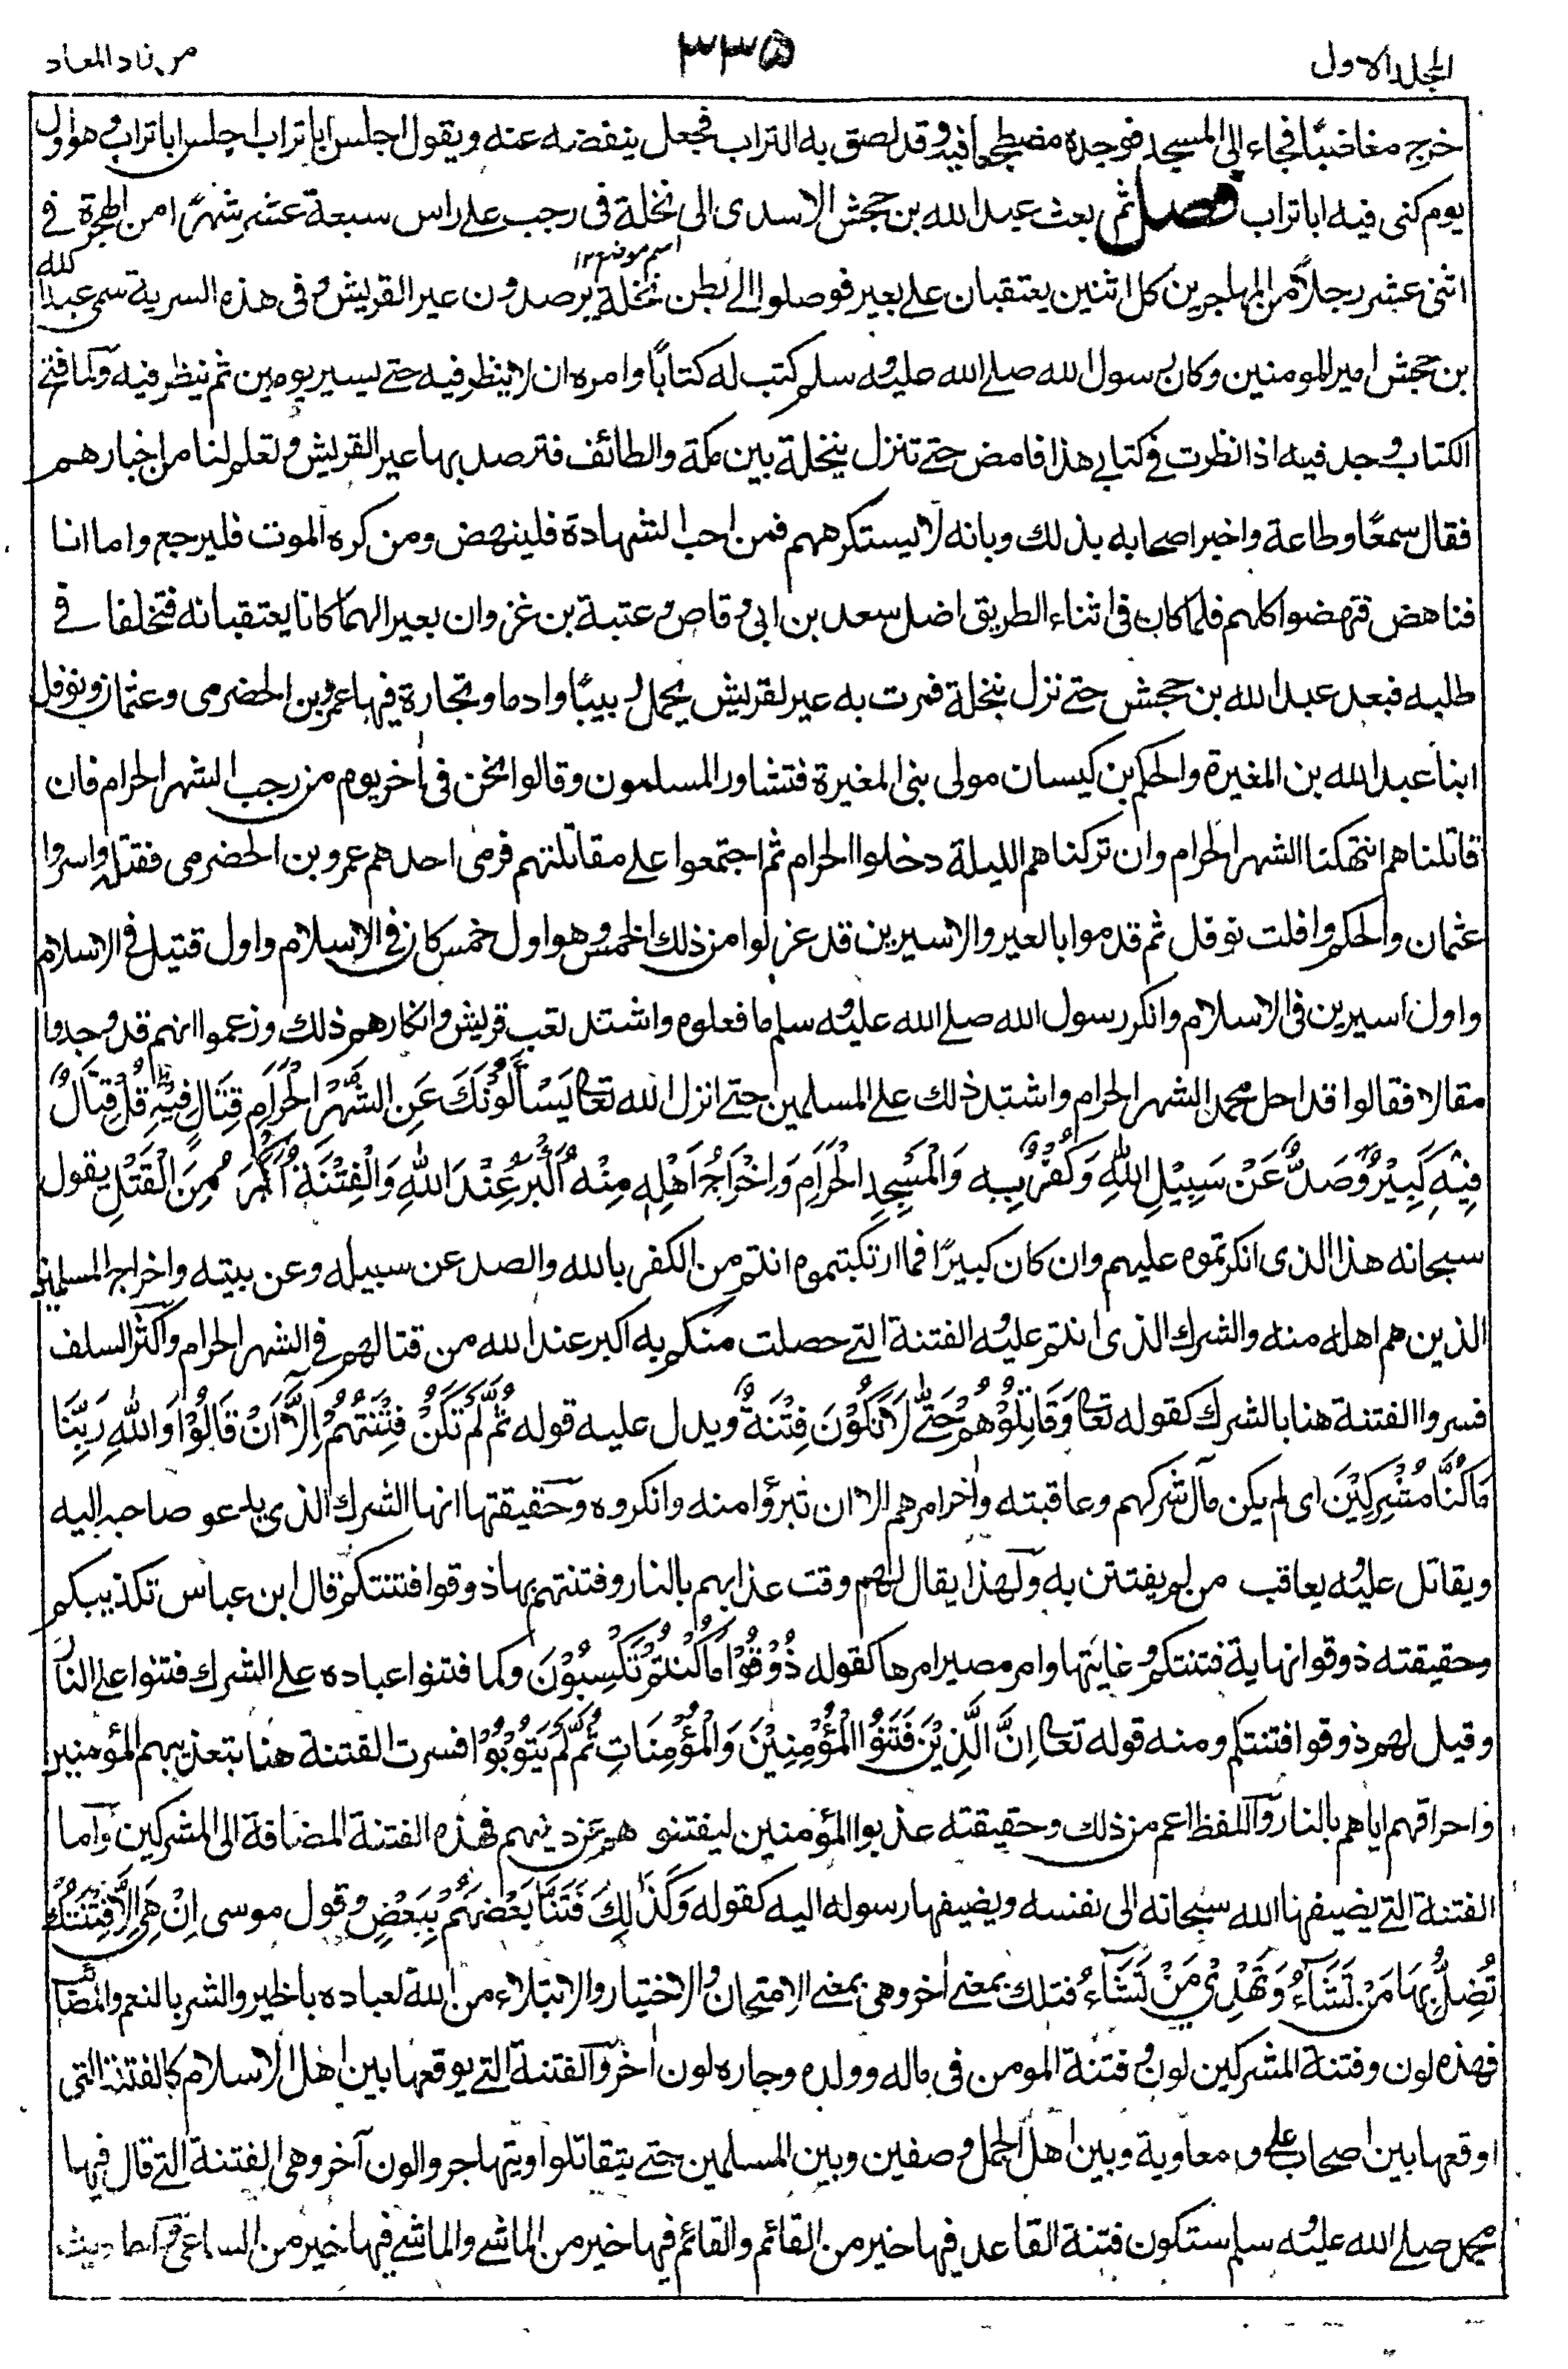 المجلد الاول
٣٣٥
من زاد المعاد
خرج مغاضبًا فجاء الى المسجد فوجده مضطجعا فيه وقد لصق به التراب فجعل ينفضه عنه ويقول اجلس ابا تراب اجلس ابا تراب وهو اول
يوم كنى فيه ابا تراب فصل ثم بعث عبد الله بن جحش الاسدى الى نخلة فى رجب على راس سبعة عشر شهرًا من الهجرة فى
اسم موضع ١٢
اثنى عشر رجلًا من المهاجرين كل اثنين يعتقبان على بعير فوصلوا الى بطن نخلة يرصدون عير القريش وفى هذه السرية سمى عبد الله
بن جحش امير المومنين وكان رسول الله صلى الله عليه وسلم كتب له كتابًا وامره ان لا ينظر فيه حتى يسير يومين ثم ينظر فيه ولما فتح
الكتاب وجد فيه اذا نظرت فى كتابى هذا فامض حتى تنزل بنخلة بين مكة والطائف فترصد بها عير القريش وتعلم لنا من اخبارهم
فقال سمعًا وطاعة واخبر اصحابه بذلك وبانه لا يستكرههم فمن احب الشهادة فلينهض ومن كره الموت فليرجع واما انا
فناهض فنهضوا كلهم فلما كان فى اثناء الطريق اضل سعد بن ابى وقاص وعتبة بن غزوان بعيرا لهما كانا يعتقبانه فتخلفا فى
طلبه فبعد عبد الله بن جحش حتى نزل بنخلة فمرت به عير لقريش يحمل زبيبًا وادما وتجارة فيها عمرو بن الحضرمى وعثمان ونوفل
ابنا عبد الله بن المغيرة والحكم بن كيسان مولى بنى المغيرة فتشاور المسلمون وقالوا نحن فى اخر يوم من رجب الشهر الحرام فان
قاتلناهم انتهكنا الشهر الحرام وان تركناهم الليلة دخلوا الحرام ثم اجتمعوا على مقاتلتهم فرمى احدهم عمرو بن الحضرمى فقتله واسروا
عثمان والحكم وافلت نوفل ثم قدموا بالعير والاسيرين قد عزلوا من ذلك الخمس وهو اول خمس كان فى الاسلام واول قتيل فى الاسلام
واول اسيرين فى الاسلام وانكر رسول الله صلى الله عليه وسلم ما فعلوه واشتد تعب قريش وانكارهم ذلك وزعموا انهم قد وجدوا
مقالا فقالوا قد احل محمد الشهر الحرام واشتد ذلك على المسلمين حتى انزل الله تعالى يَسْأَلُوْنَكَ عَنِ الشَّهْرِ الْحَرَامِ قِتَالٍ فِيْهِ قُلْ قِتَالٌ
فِيْهِ كَبِيْرٌ وَّصَدٌّ عَنْ سَبِيْلِ اللّٰهِ وَكُفْرٌ بِهٖ وَالْمَسْجِدِ الْحَرَامِ وَاِخْرَاجُ اَهْلِهٖ مِنْهُ اَكْبَرُ عِنْدَ اللّٰهِ وَالْفِتْنَةُ اَكْبَرُ مِنَ الْقَتْلِ يقول
سبحانه هذا الذى انكرتموه عليهم وان كان كبيرًا فما ارتكبتموه انتم من الكفر بالله والصد عن سبيله وعن بيته واخراج المسلمين
الذين هم اهله منه والشرك الذى انتم عليه الفتنة التى حصلت منكم به اكبر عند الله من قتالهم فى الشهر الحرام واكثر السلف
فسروا الفتنة هنا بالشرك كقوله تعالى وَقَاتِلُوْهُمْ حَتّٰى لَا تَكُوْنَ فِتْنَةٌ ويدل عليه قوله ثُمَّ لَمْ تَكُنْ فِتْنَتُهُمْ اِلَّا اَنْ قَالُوْا وَاللّٰهِ رَبِّنَا
مَا كُنَّا مُشْرِكِيْنَ اى لم يكن مآل شركهم وعاقبته واخر امرهم الا ان تبرؤا منه وانكروه وحقيقتها انها الشرك الذى يدعو صاحبه اليه
ويقاتل عليه يعاقب من لم يفتتن به ولهذا يقال لهم وقت عذابهم بالنار وفتنتهم بها ذوقوا فتنتكم قال ابن عباس تكذيبكم
وحقيقته ذوقوا نهاية فتنتكم وغايتها وامر مصير امرها كقوله ذُوْقُوْا مَا كُنْتُمْ تَكْسِبُوْنَ وكما فتنوا عباده على الشرك فتنوا على النار
وقيل لهم ذوقوا فتنتكم ومنه قوله تعالى اِنَّ الَّذِيْنَ فَتَنُوا الْمُؤْمِنِيْنَ وَالْمُؤْمِنَاتِ ثُمَّ لَمْ يَتُوْبُوْا فسرت الفتنة هنا بتعذيبهم المؤمنين
واحراقهم اياهم بالنار واللفظ اعم من ذلك وحقيقته عذبوا المؤمنين ليفتنوهم عن دينهم فهذه الفتنة المضافة الى المشركين واما
الفتنة التى يضيفها الله سبحانه الى نفسه ويضيفها رسوله اليه كقوله وَكَذٰلِكَ فَتَنَّا بَعْضَهُمْ بِبَعْضٍ وقول موسى اِنْ هِيَ اِلَّا فِتْنَتُكَ
تُضِلُّ بِهَا مَنْ تَشَآءُ وَتَهْدِيْ مَنْ تَشَآءُ فتلك بمعنى اخر وهى بمعنى الامتحان والاختبار والابتلاء من الله لعباده بالخير والشر بالنعم والمصائب
فهذه لون وفتنة المشركين لون وفتنة المومن فى ماله وولده وجاره لون اخر والفتنة التى يوقعها بين اهل الاسلام كالفتنة التى
اوقعها بين اصحاب على ومعاوية وبين اهل الجمل وصفين وبين المسلمين حتى يتقاتلوا ويتهاجروا لون آخر وهى الفتنة التى قال فيها
محمد صلى الله عليه وسلم ستكون فتنة القاعد فيها خير من القائم والقائم فيها خير من الماشى والماشى فيها خير من الساعى واحاديث